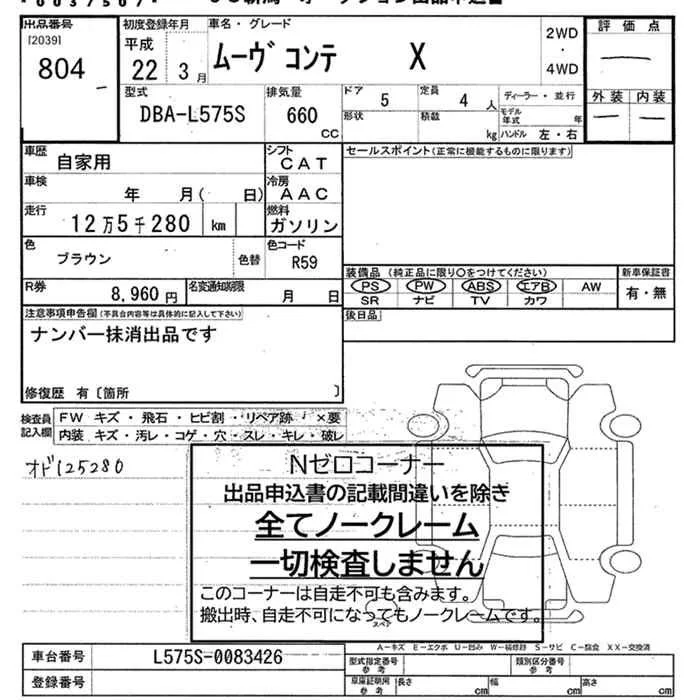 出品番号 [2039] 804
初度登録年月 平成 22 3月
車名・グレード ムーヴ コンテ X
2WD ・ 4WD
評価点
外装 内装
型式 DBA-L575S
排気量 660 CC
ドア 5
定員 4 人
形状
積載 kg
ディーラー・並行
モデル年式 年
ハンドル 左・右
車歴 自家用
シフト CAT
セールスポイント(正常に機能するものに限ります)
車検 年 月( 日)
冷房 AAC
走行 12万5千280 km
燃料 ガソリン
色 ブラウン 色替
色コード R59
装備品 (純正品に限り○をつけてください)
新車保証書
PS PW ABS エアB AW
SR ナビ TV カワ
有・無
R券 8,960円
名変通知期限 月 日
注意事項申告欄(不具合内容等は具体的に記入して下さい)
後日品
ナンバー抹消出品です
修復歴 有〔箇所 〕
検査員記入欄
FW キズ・飛石・ヒビ割・リペア跡・×要
内装 キズ・汚レ・コゲ・穴・スレ・キレ・破レ
オド125280
Nゼロコーナー
出品申込書の記載間違いを除き
全てノークレーム
一切検査しません
このコーナーは自走不可も含みます。
搬出時、自走不可になってもノークレームです。
スペア
A-キズ E-エクボ U-凹み W-補修跡 S-サビ C-腐食 XX-交換済
車台番号 L575S-0083426
型式指定番号 参考
類別区分番号 参考
登録番号
車庫証明用 参考 長さ cm 幅 cm 高さ cm